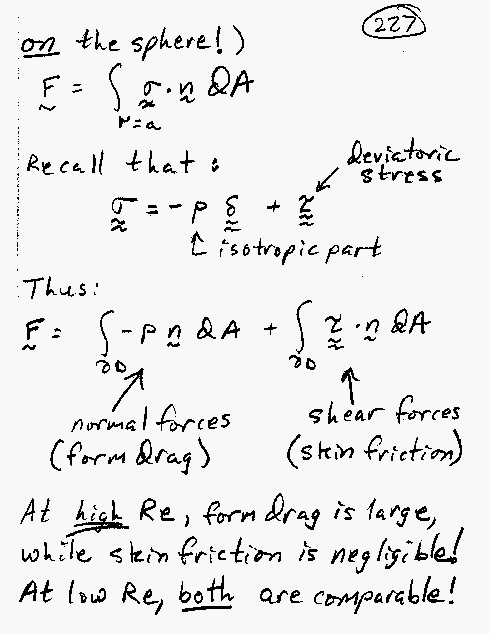 227
on the sphere!)
F = ∫ σ · n dA
r=a
Recall that:
deviatoric
stress
σ = -p δ + τ
isotropic part
Thus:
F = ∫ -p n dA + ∫ τ · n dA
∂D ∂D
normal forces
(form drag)
shear forces
(skin friction)
At high Re, form drag is large,
while skin friction is negligible!
At low Re, both are comparable!